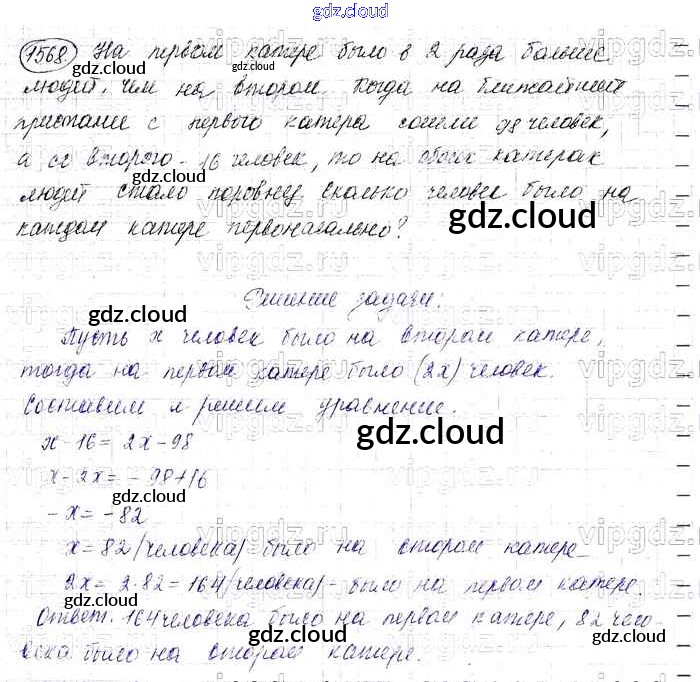 gdz.cloud
1568. На первом катере было в 2 раза больше
людей, чем на втором. Когда на ближайшей
пристани с первого катера сошли 98 человек,
а со второго - 16 человек, то на обоих катерах
людей стало поровну. Сколько человек было на
каждом катере первоначально?
Решение задачи:
Пусть x человек было на втором катере,
тогда на первом катере было (2x) человек.
Составим и решим уравнение.
x - 16 = 2x - 98
x - 2x = - 98 + 16
- x = - 82
x = 82 (человека) было на втором катере
2x = 2·82 = 164 (человека) - было на первом катере.
Ответ. 164 человека было на первом катере, 82 чело-
века было на втором катере.